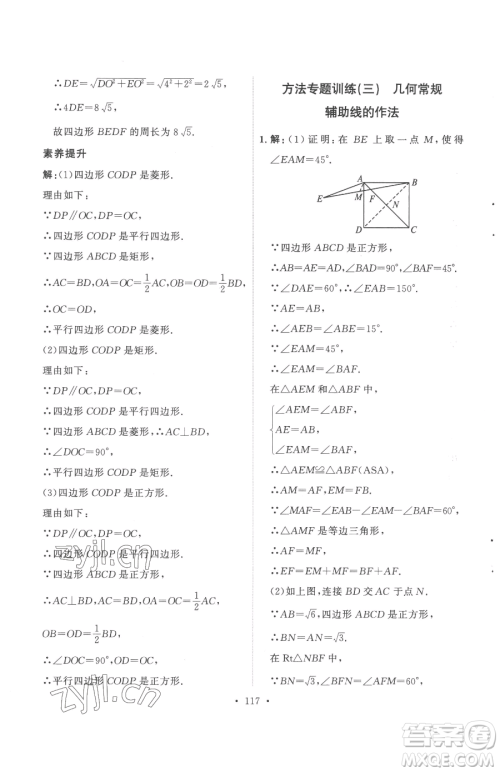 ∴DE=√(DO²+EO²)=√(4²+2²)=2√5.
∴4DE=8√5.
故四边形 BEDF 的周长为 8√5.
素养提升
解:(1)四边形 CODP 是菱形.
理由如下:
∵DP∥OC,DP=OC,
∴四边形 CODP 是平行四边形.
∵四边形 ABCD 是矩形,
∴AC=BD,OA=OC=1/2AC,OB=OD=1/2BD,
∴OC=OD,
∴平行四边形 CODP 是菱形.
(2)四边形 CODP 是矩形.
理由如下:
∵DP∥OC,DP=OC,
∴四边形 CODP 是平行四边形.
∵四边形 ABCD 是菱形,∴AC⊥BD,
∴∠DOC=90°,
∴平行四边形 CODP 是矩形.
(3)四边形 CODP 是正方形.
理由如下:
∵DP∥OC,DP=OC,
∴四边形 CODP 是平行四边形.
∵四边形 ABCD 是正方形,
∴AC⊥BD,AC=BD,OA=OC=1/2AC,
OB=OD=1/2BD,
∴∠DOC=90°,OD=OC,
∴平行四边形 CODP 是正方形.
方法专题训练(三) 几何常规
辅助线的作法
1.解:(1)证明:在 BE 上取一点 M,使得
∠EAM=45°.
A
B
E
M
F
N
D
C
∵四边形 ABCD 是正方形,
∴AB=AD,∠BAD=90°,∠BAF=45°.
∵∠DAE=60°,∴∠EAB=150°.
∵AE=AB,
∴∠AEM=∠ABE=15°.
∴∠EAM=∠BAF.
在△AEM 和△ABF 中,
∠AEM=∠ABF,
AE=AB,
∠EAM=∠BAF,
∴△AEM≌△ABF(ASA).
∴AM=AF.
∵∠MAF=∠EAB-∠EAM-∠BAF=60°,
∴△AMF 是等边三角形,
∴AF=FM.
(2)如上图,连接 BD 交 AC 于点 N.
∵AB=√6,四边形 ABCD 是正方形,
∴BN=AN=√3.
在 Rt△NBF 中,
∵BN=√3,∠NBF=∠ABD-∠ABF=30°,
117
zyjl.cn
zyjl.cn
答案圈
MXQE.COM